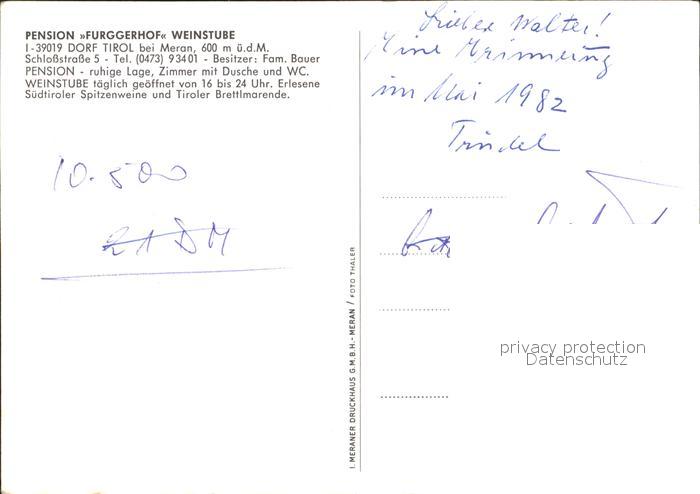 PENSION »FURGGERHOF« WEINSTUBE
I-39019 DORF TIROL bei Meran, 600 m ü.d.M.
Schloßstraße 5 - Tel. (0473) 93401 - Besitzer: Fam. Bauer
PENSION - ruhige Lage, Zimmer mit Dusche und WC.
WEINSTUBE täglich geöffnet von 16 bis 24 Uhr. Erlesene
Südtiroler Spitzenweine und Tiroler Brettlmarende.
10.500
21 DM
I. MERANER DRUCKHAUS G.M.B.H. - MERAN / FOTO THALER
Lieber Walter!
Eine Erinnerung
im Mai 1982
Trudel
privacy protection
Datenschutz